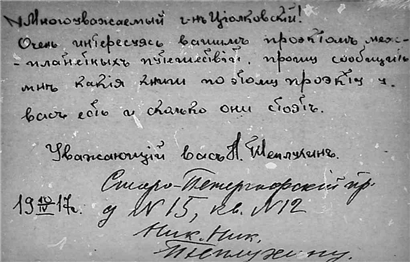 Многоуважаемый г-нъ Ціолковскій!
Очень интересуясь вашимъ проэктомъ меж-
-планетныхъ путешествій, прошу сообщить
мнѣ какія книги по этому проэкту у
васъ есть и сколько они стоятъ.
Уважающій васъ Н. Теплухинъ.
Старо-Петергофскій пр.
19 17 г. д. № 15, кв. № 12
Ник. Ник.
Теплухину.